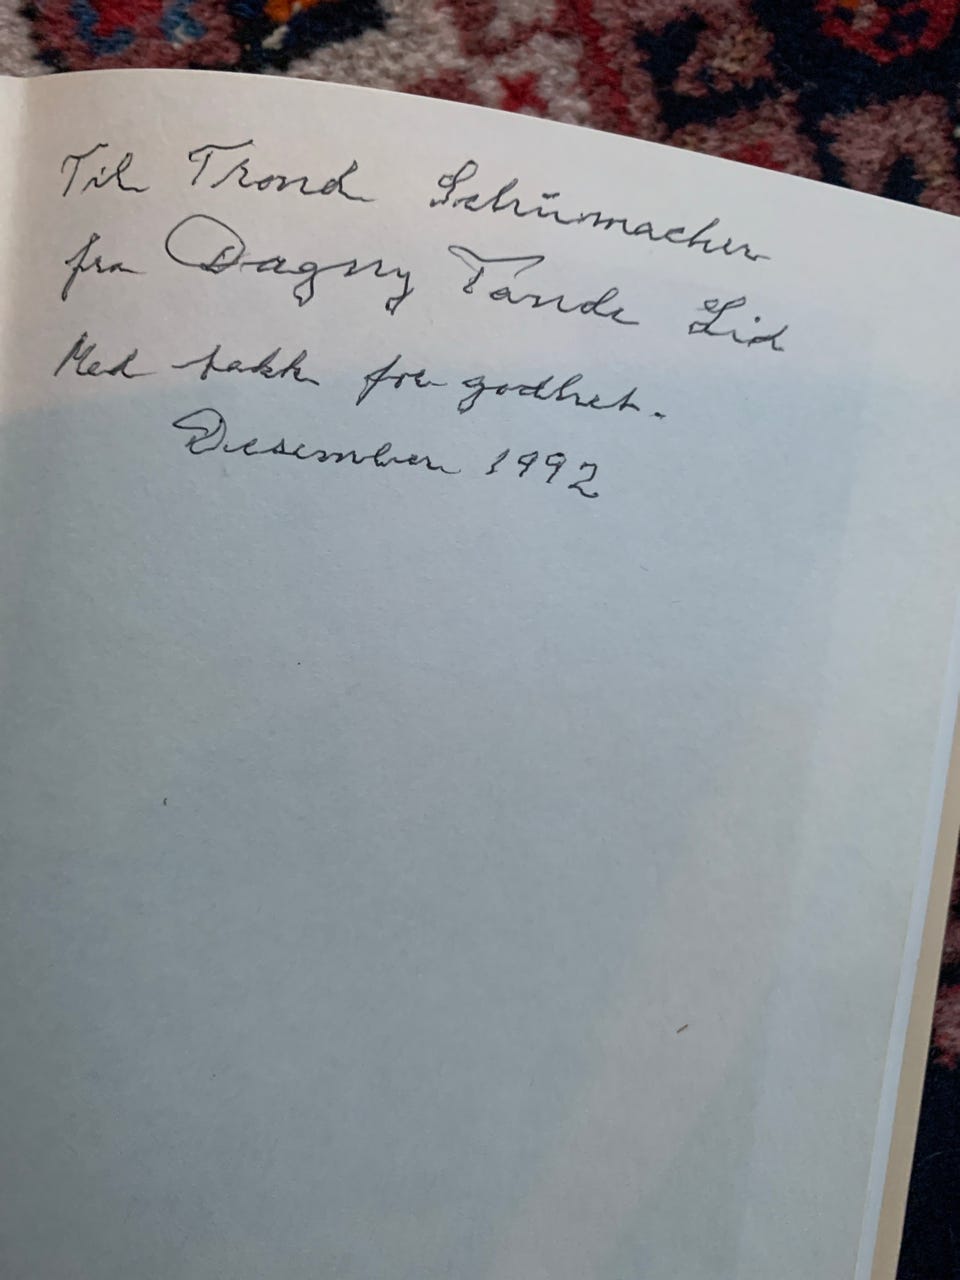 Til Trond Schümacher
fra Dagny Tande Lid
Med takk for godhet.
Desember 1992